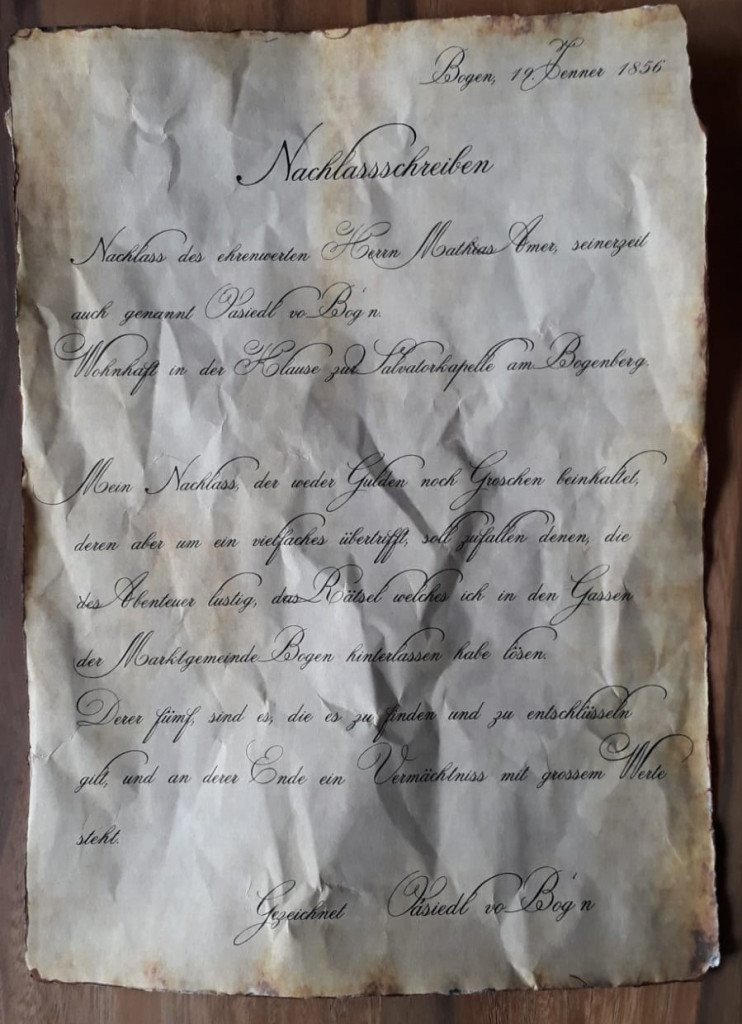 Bogen, 19. Jenner 1856
Nachlassschreiben
Nachlass des ehrenwerten Herrn Mathias Amer, seinerzeit
auch genannt Oasiedl vo Bog'n.
Wohnhaft in der Klause zur Salvatorkapelle am Bogenberg.
Mein Nachlass, der weder Gulden noch Groschen beinhaltet,
deren aber um ein vielfaches übertrifft, soll zufallen denen, die
des Abenteuer lustig, das Rätsel welches ich in den Gassen
der Marktgemeinde Bogen hinterlassen habe lösen.
Derer fünf, sind es, die es zu finden und zu entschlüsseln
gilt, und an derer Ende ein Vermächtniss mit grossem Werte
steht.
Gezeichnet Oasiedl vo Bog'n